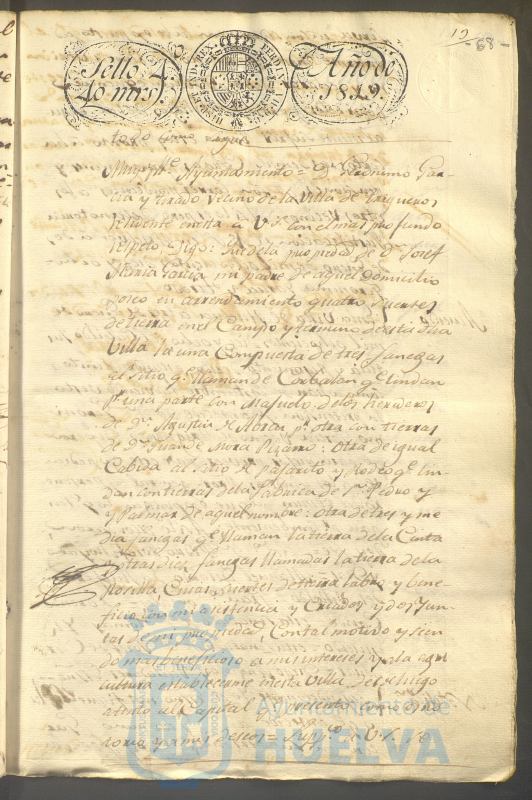 19
68
Sello 4.
40 mrs.
HISP. ET IND. REX. FERDIN. VII
Año de
1819.
todo como aquel
Ayuntamiento = Dn. Geronimo Gar-
cia y Tirado Vecino de la Villa de Trigueros
residente en esta a V.S. con el mas profundo
respeto Digo: Qe. de la propiedad de Dn. Josef
Maria Garcia mi padre de aquel domicilio
poseo en arrendamiento quatro suertes
de tierra en el Campo y termino de esta dha
Villa la una Compuesta de tres fanegas
al sitio qe. llaman de Corbalan qe. lindan
pr. una parte con Majuelo de los herederos
de Dn. Agustin de pr. otra con tierras
de Dn. Juan de Mora Pizarro: Otra de igual
Cabida al Sitio de Pajarito y Rodeo qe. lin-
dan con tierras de la Fabrica de Sn. Pedro y
y Palmar de aquel nombre: Otra de tres y me-
dia fanegas qe. llaman la tierra de la Cinta
y otras diez fanegas llamadas la tierra de la
Rosilla Cuias suertes de tierra labro y bene-
ficio con mi asistencia y Criados y de Yun-
tas de mi propiedad, Con tal motivo y sien-
do mas beneficioso a mis intereses y a la agri
cultura establecerme en esta Villa desde luego
Capital qe. presento como
y a mis deseos = Suppco. a V.S. se
Ayuntamiento de
HUELVA